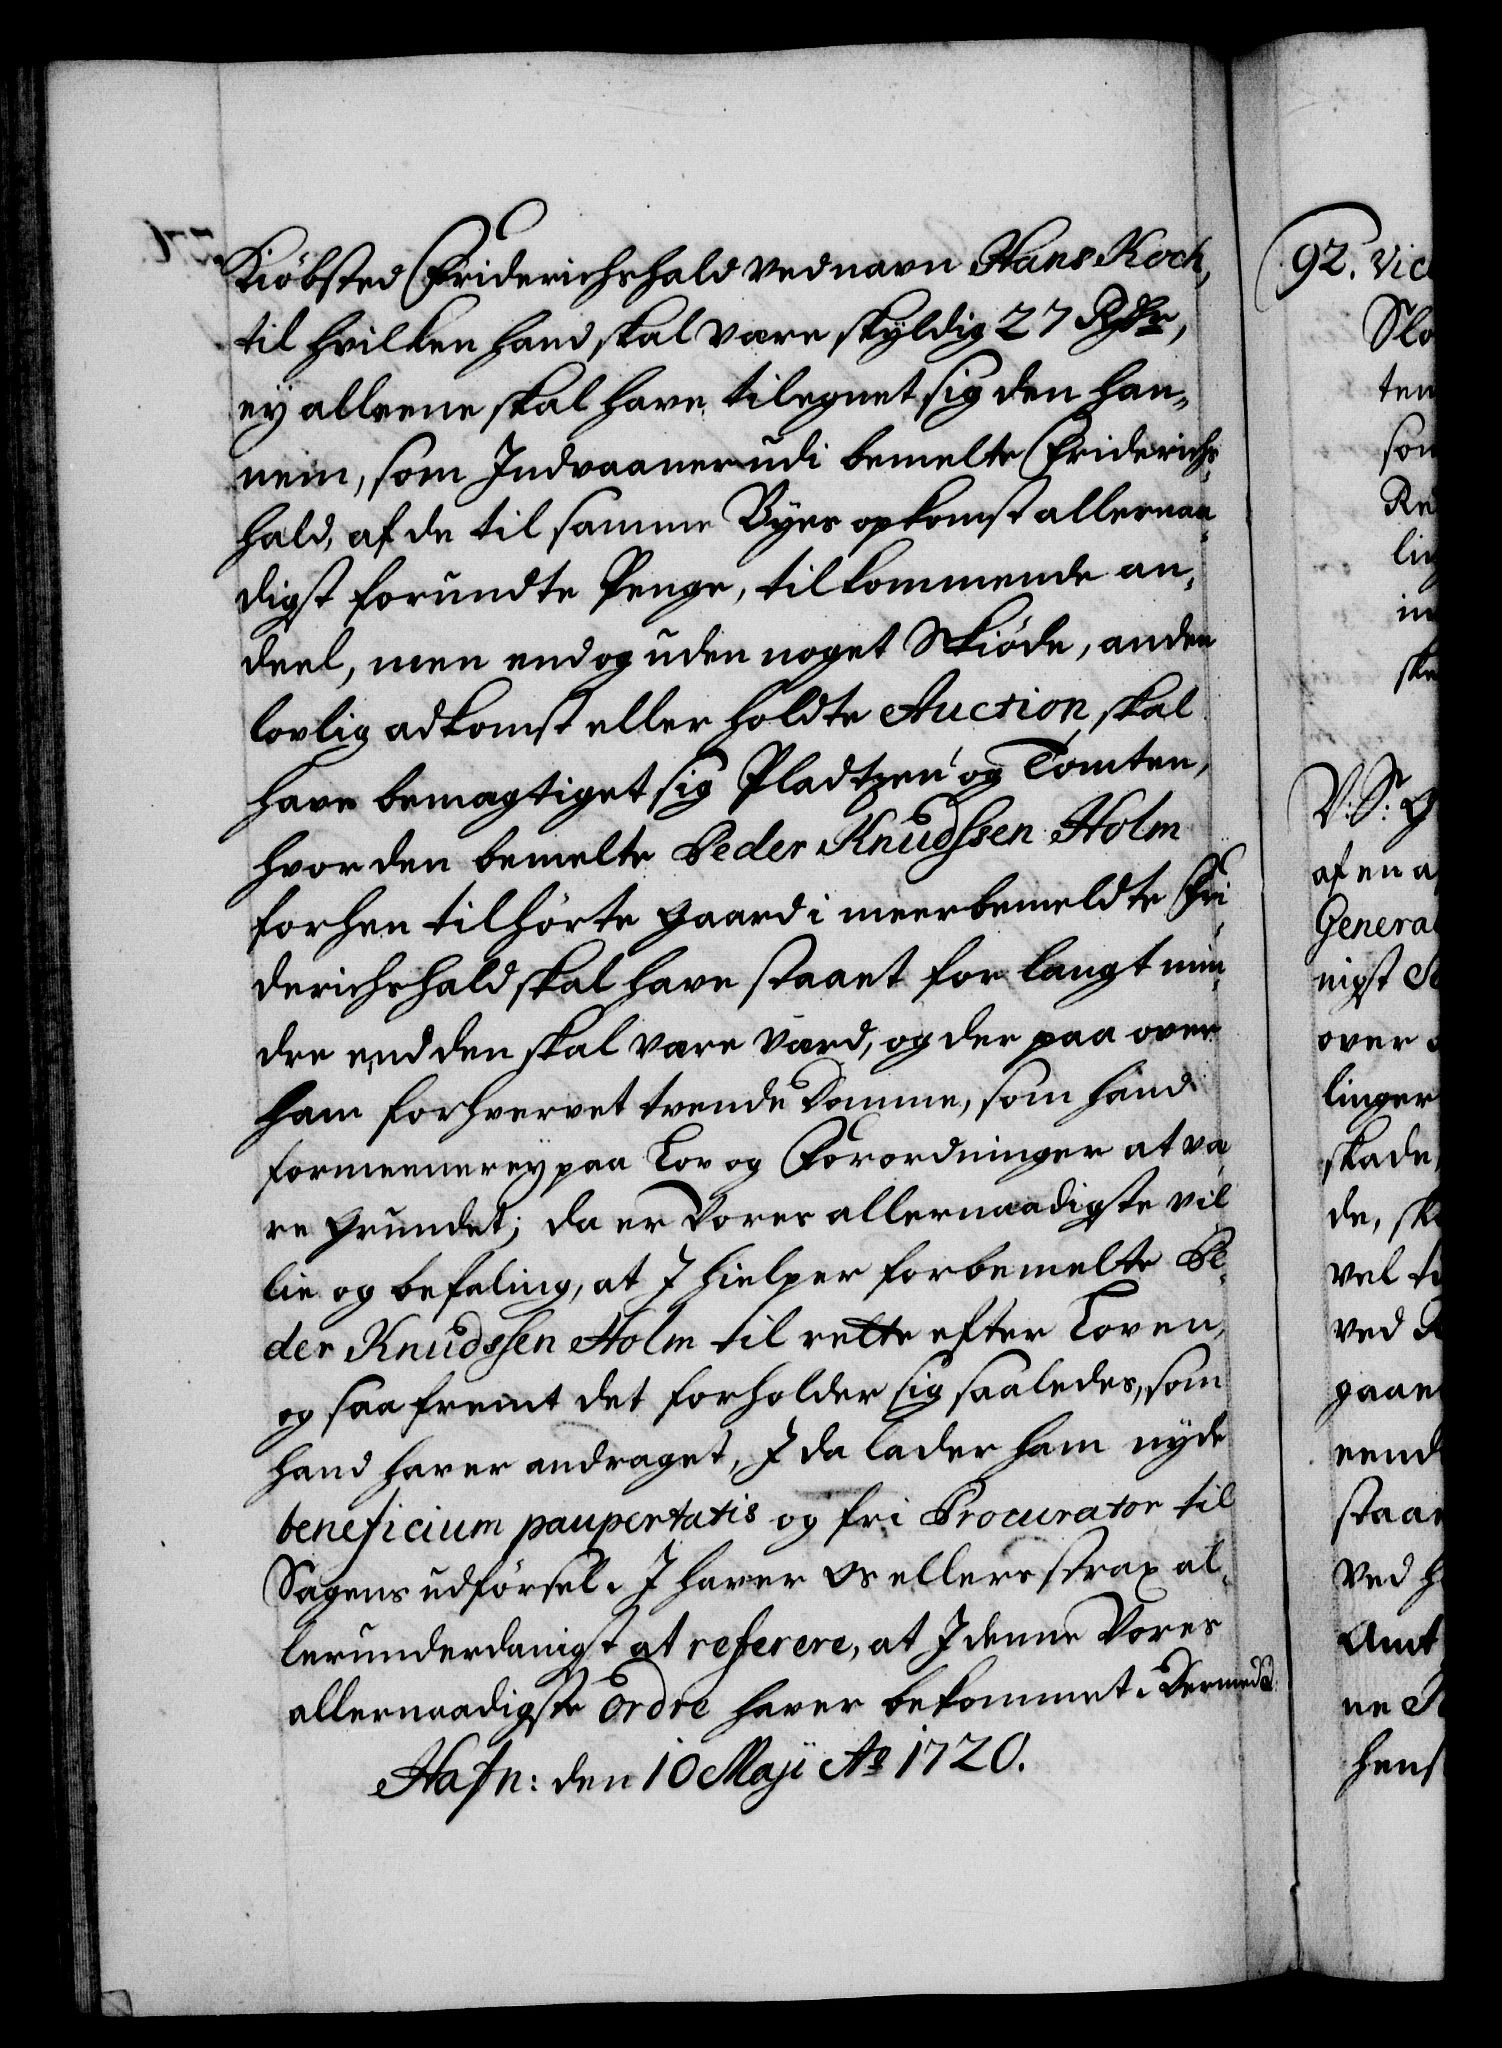 Kiöbsted Friderichshald ved navn Hans Koch,
til hvilken hand skal være skyldig 27 Rdr,
ey alleene skal have tilegnet sig den han-
nem, som Indvaaner udi bemelte Friderichs-
hald, af de til samme Byes opkomst allernaa-
digst forundte Penge, tilkommende an-
deel, men endog uden noget Skiöde, anden
lovlig adkomst eller holdte Auction, skal
have bemagtiget sig Pladtzen og Tomten,
hvor den bemelte Peder Knudssen Holm
forhen tilhörte gaard i meerbemeldte Fri-
derichshald skal have staaet for langt min-
dre end den skal være værd, og der paa over
ham forhvervet tvende Domme, som hand
formeener ey paa Lov og Forordninger at væ-
re grundet; da er Vores allernaadigste vil-
lie og befaling, at I hielper forbemelte Pe-
der Knudssen Holm til rette efter Loven,
og saafremt det forholder sig saaledes, som
hand haver andraget, I da lader ham nyde
beneficium paupertatis og fri Procurator til
Sagens udförsel. I haver Os ellers strax al-
lerunderdanigst at referere, at I denne Vores
allernaadigste Ordre haver bekommet. Dermed
Hafn: den 10 Maji Ao 1720.
92. Vic
Slo
ten
som
Re
lig
in
ske
V: S: G
af en a
General
nigst
over
linger
skade
de, sk
vel ti
ved
gaan
eend
staa
ved h
Amt
ne
hens